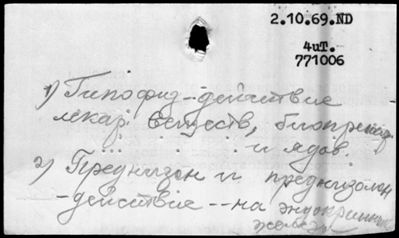 2.10.69.ND
4иT.
771006
1) Гипофиз - действие
лекар. веществ, биопрепар.
и ядов.
2) Преднизон и преднизолон
- действие -- на эндокринные
железы